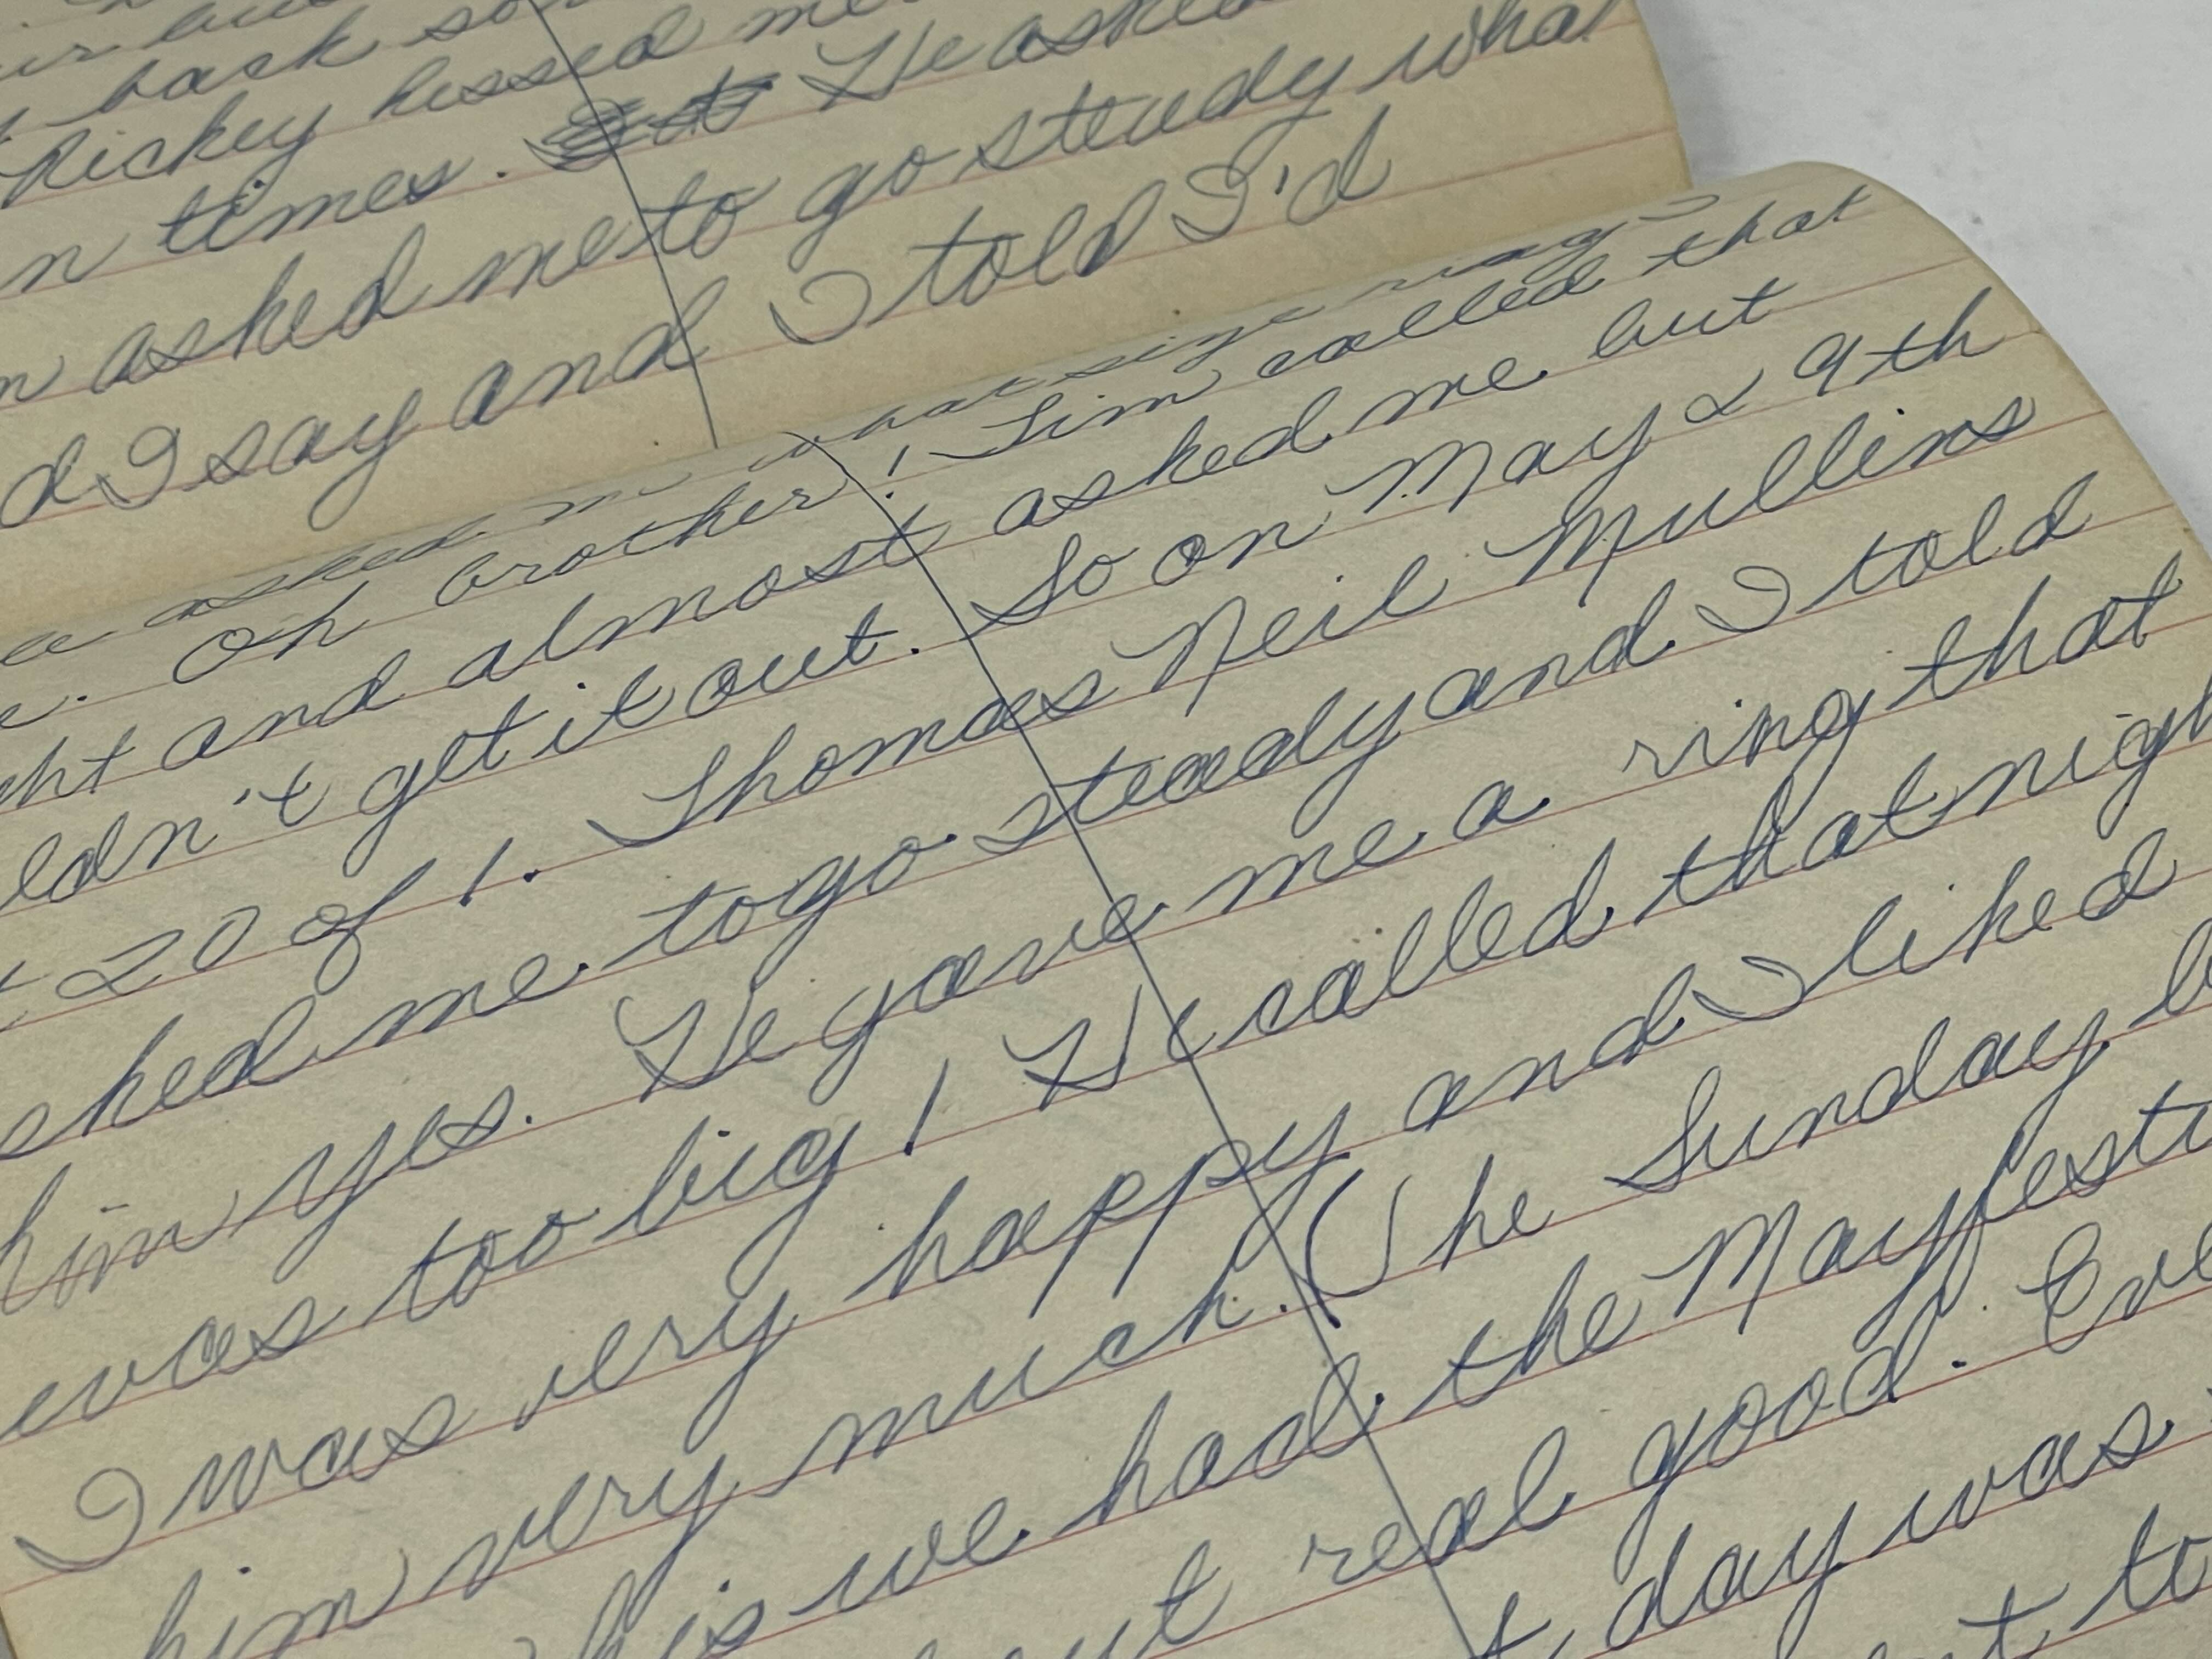 back so
Rickey kissed me
n times. He asked
n asked me to go steady wha
d I say and I told I'd
asked me what size ring
e. Oh brother! Tim called that
ght and almost asked me but
uldn't get it out. So on May 29th
t 20 of 1. Thomas Neil Mullins
sked me to go steady and I told
him yes. He gave me a ring that
was too big! He called that nigh
I was very happy and I liked
him very much. (The Sunday b
his we had the Mayfesti
out real good. Eve
t day was
t to